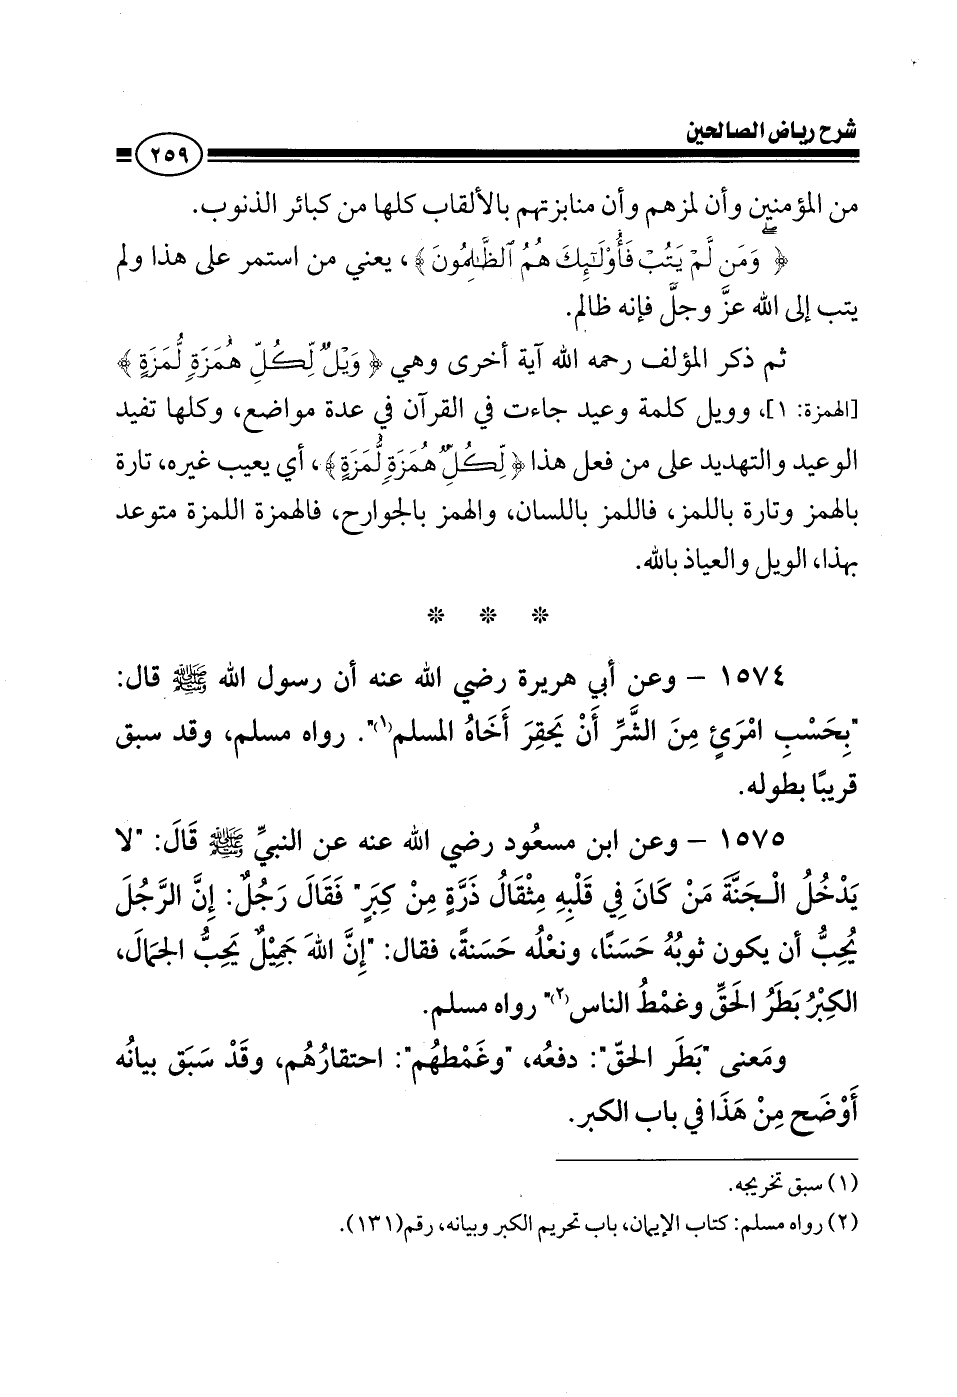 شرح رياض الصالحين
٢٥٩
من المؤمنين وأن لمزهم وأن منابزتهم بالألقاب كلها من كبائر الذنوب.
﴿ وَمَن لَّمْ يَتُبْ فَأُوْلَٰٓئِكَ هُمُ ٱلظَّٰلِمُونَ ﴾، يعني من استمر على هذا ولم
يتب إلى الله عزَّ وجلَّ فإنه ظالم.
ثم ذكر المؤلف رحمه الله آية أخرى وهي ﴿ وَيْلٌ لِّكُلِّ هُمَزَةٍ لُّمَزَةٍ ﴾
[الهمزة: ١]، وويل كلمة وعيد جاءت في القرآن في عدة مواضع، وكلها تفيد
الوعيد والتهديد على من فعل هذا ﴿ لِّكُلِّ هُمَزَةٍ لُّمَزَةٍ ﴾، أي يعيب غيره، تارة
بالهمز وتارة باللمز، فاللمز باللسان، والهمز بالجوارح، فالهمزة اللمزة متوعد
بهذا، الويل والعياذ بالله.
* * *
١٥٧٤ – وعن أبي هريرة رضي الله عنه أن رسول الله ﷺ قال:
"بِحَسْبِ امْرَئٍ مِنَ الشَّرِّ أَنْ يَحقِرَ أَخَاهُ المسلم(١)". رواه مسلم، وقد سبق
قريبًا بطوله.
١٥٧٥ – وعن ابن مسعُود رضي الله عنه عن النبيِّ ﷺ قَالَ: "لا
يَدْخُلُ الْجَنَّةَ مَنْ كَانَ فِي قَلْبِهِ مِثْقَالُ ذَرَّةٍ مِنْ كِبَرٍ" فَقَالَ رَجُلٌ: إِنَّ الرَّجُلَ
يُحِبُّ أن يكون ثوبُهُ حَسَنًا، ونعْلُه حَسَنةً، فقال: "إنَّ اللهَ جَمِيْلٌ يَحِبُّ الجمالَ،
الكِبْرُ بَطَرُ الحَقِّ وغمْطُ الناس(٢)" رواه مسلم.
ومَعنى "بَطَر الحقّ": دفعُه، "وغَمْطهُم": احتقارُهُم، وقَدْ سَبَق بيانُه
أَوْضَح مِنْ هَذَا في باب الكبر.
(١) سبق تخريجه.
(٢) رواه مسلم: كتاب الإيمان، باب تحريم الكبر وبيانه، رقم(١٣١).